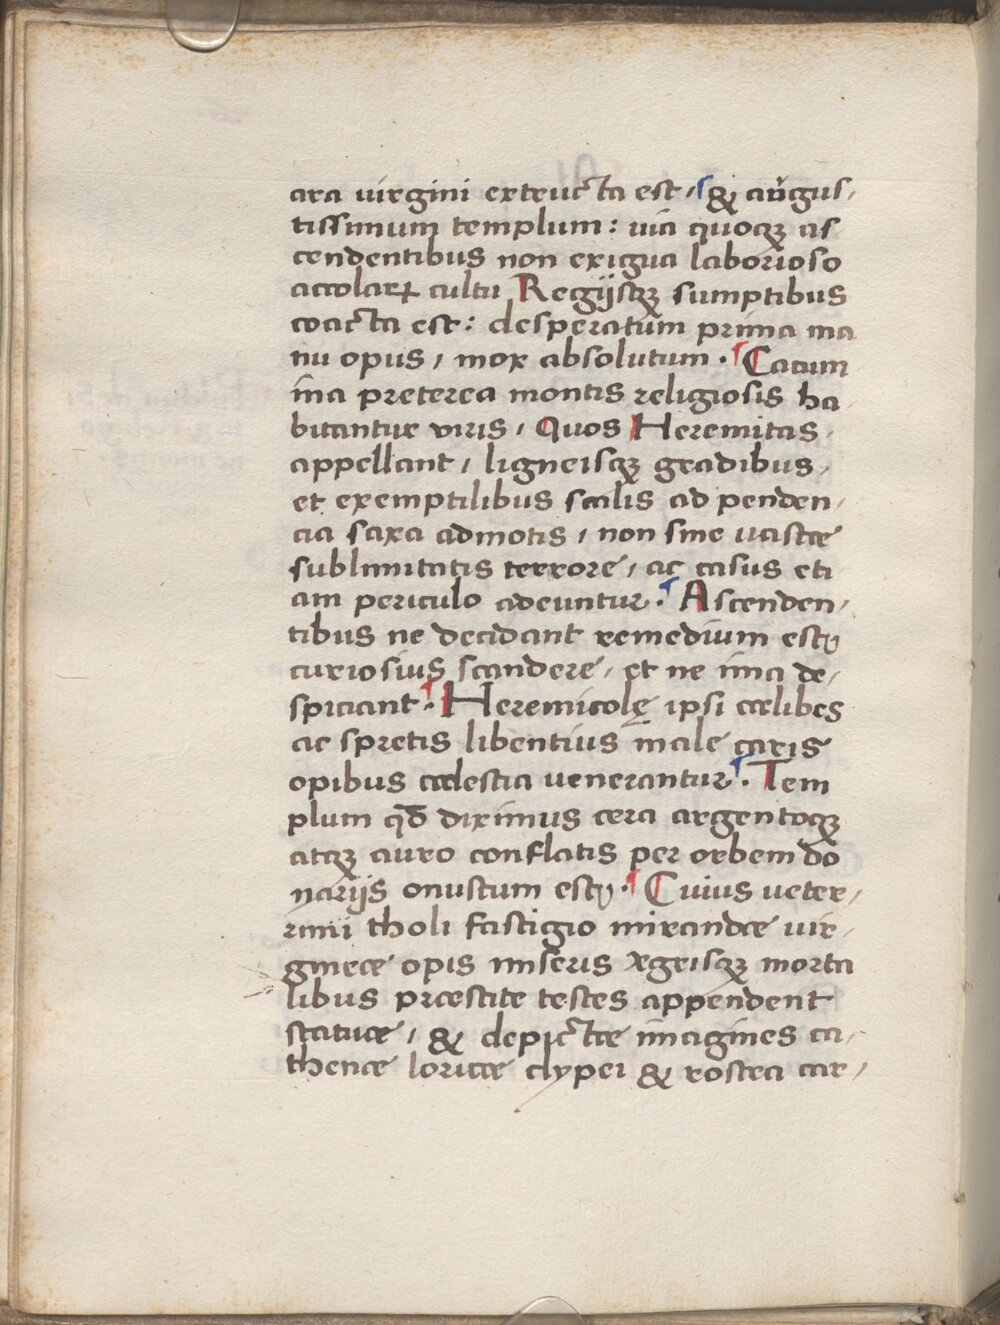 ara virgini extructa est, & augus,
tissimum templum: uia quoqꝫ as
cendentibus non exigua laborioso
accolaꝝ cultu Regijsqꝫ sumptibus
coacta est: desperatum prima ma
nu opus, mox absolutum. Cacum
ina preterea montis religiosis ha,
bitantur viris, Quos Heremitas,
appellant, ligneisqꝫ gradibus,
et exemptilibus scalis ad penden,
cia saxa admotis, non sine uastæ
sublimitatis terrore, ac casus eti
am periculo adeuntur. Ascenden,
tibus ne decidant remedium est,
curiosius scandere, et ne ima de,
spiciant. Heremicolę ipsi cælibes
ac spretis libentius male caris
opibus cælestia uenerantur. Tem
plum qđ diximus cera argentoqꝫ
atqꝫ auro conflatis per orbem do
narijs onustum est. Cuius ueter,
rimi tholi fastigio mirandæ uir,
gineæ opis miseris ægrisqꝫ morta
libus præstite testes appendent
statuæ, & depictæ imagines ca,
thenæ loricæ clypei & rostra car,